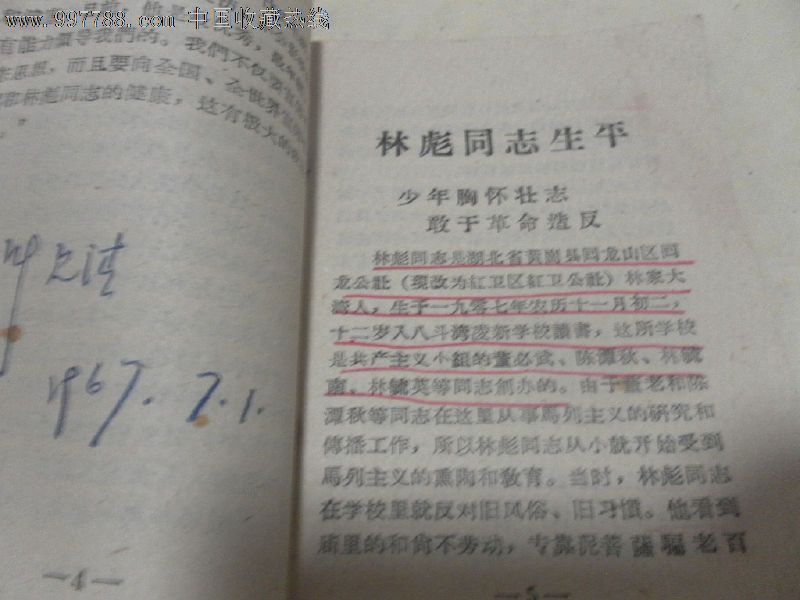 www.997788.com 中国收藏热线
有能力領导我們的。我們不仅
而且要向全国、全世界
和林彪同志的健康，这有极大的
1967.7.1.
—4—
林彪同志生平
少年胸怀壮志
敢于革命造反
林彪同志是湖北省黄崗县回龙山区回
龙公社（现改为紅卫区紅卫公社）林家大
湾人，生于一九零七年农历十一月初二，
十二岁入八斗湾浚新学校讀書，这所学校
是共产主义小組的董必武、陈潭秋、林毓
南、林毓英等同志創办的。由于董老和陈
潭秋等同志在这里从事馬列主义的研究和
傳播工作，所以林彪同志从小就开始受到
馬列主义的熏陶和敎育。当时，林彪同志
在学校里就反对旧风俗、旧习慣。他看到
庙里的和尚不劳动，专靠侂菩薩騙老百
—5—